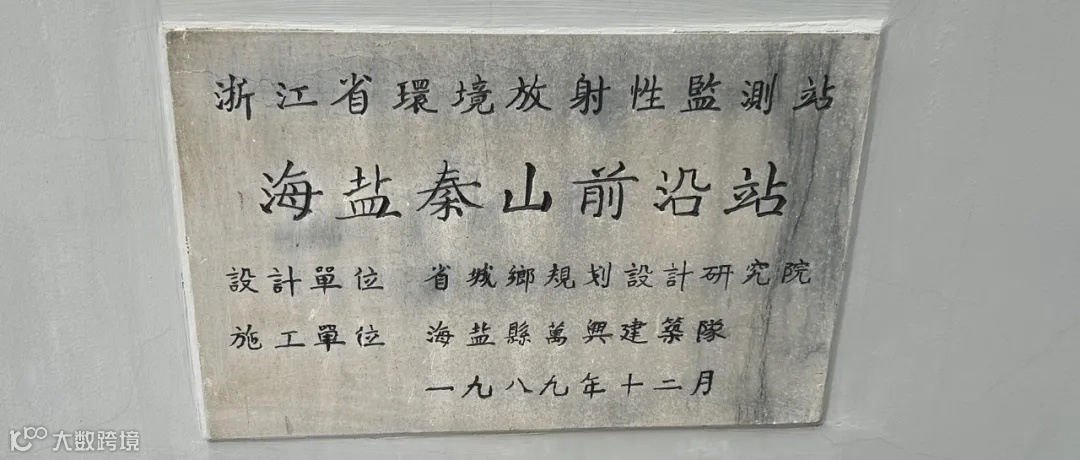 浙江省環境放射性監測站
海盐秦山前沿站
設計單位 省城鄉規划設計研究院
施工單位 海盐縣萬興建築隊
一九八九年十二月
大数跨境